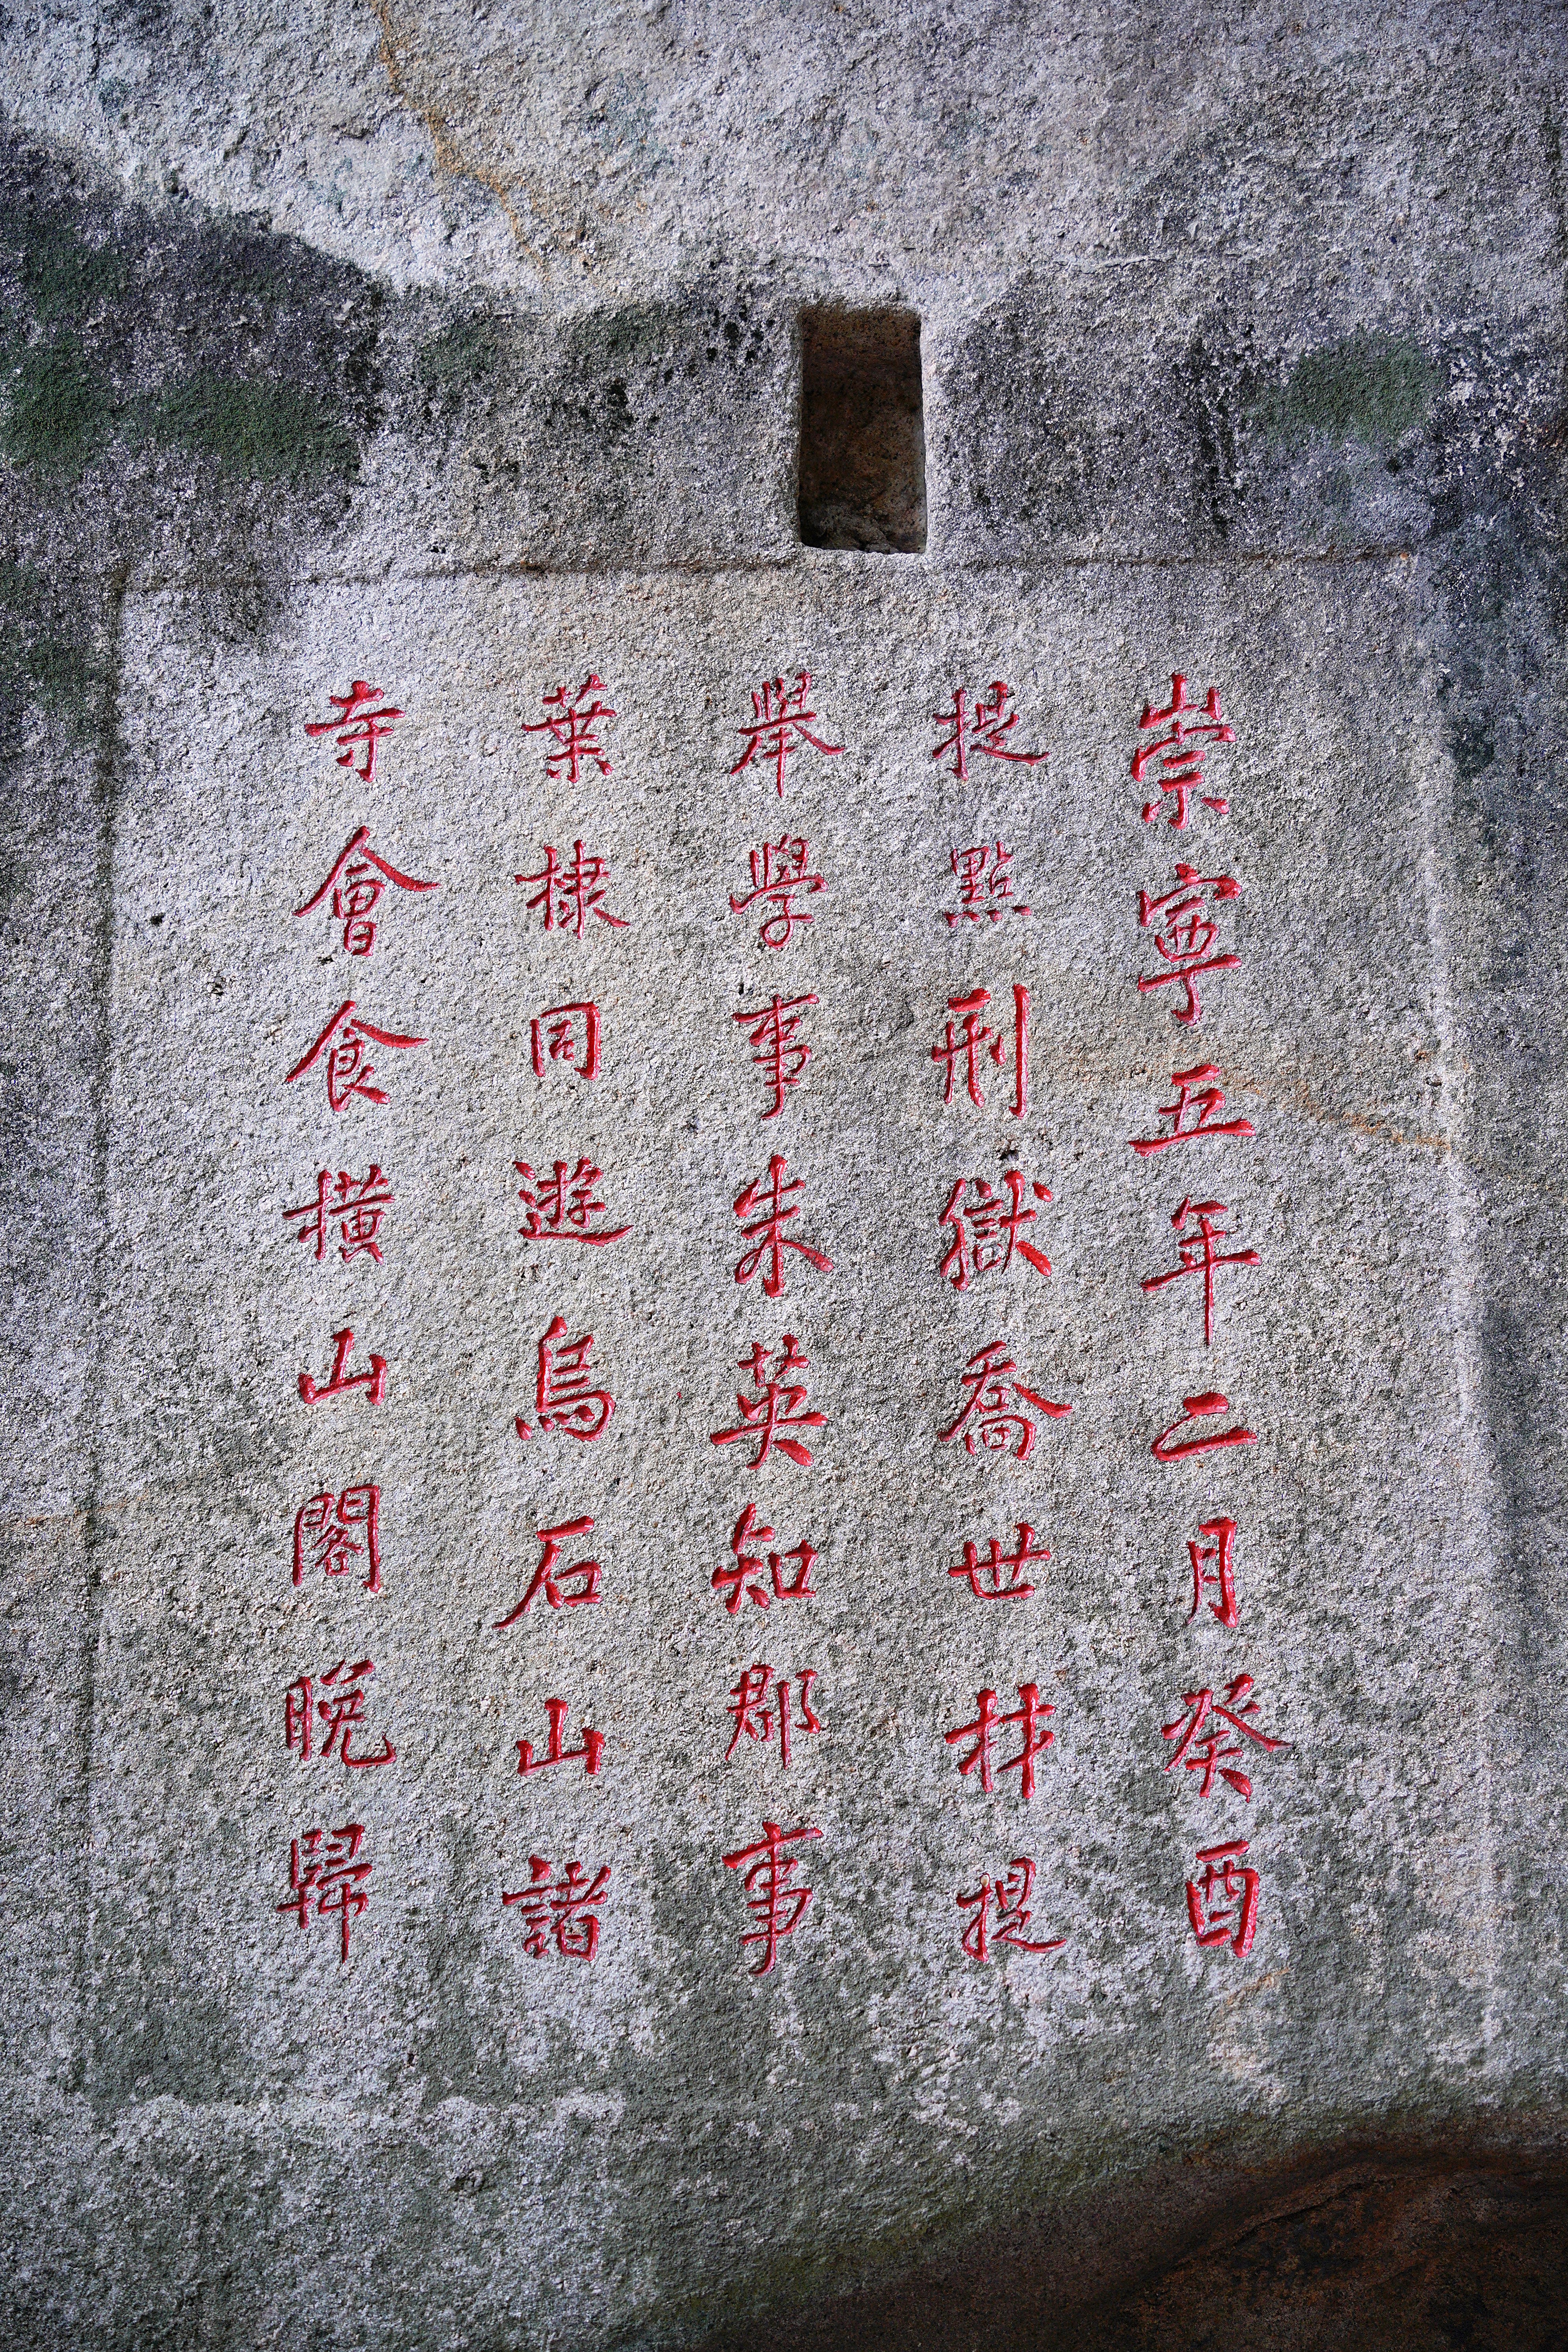 崇寧五年二月癸酉
提點刑獄喬世材提
舉學事朱英知郡事
葉棣同遊烏石山諸
寺會食橫山閣晚歸